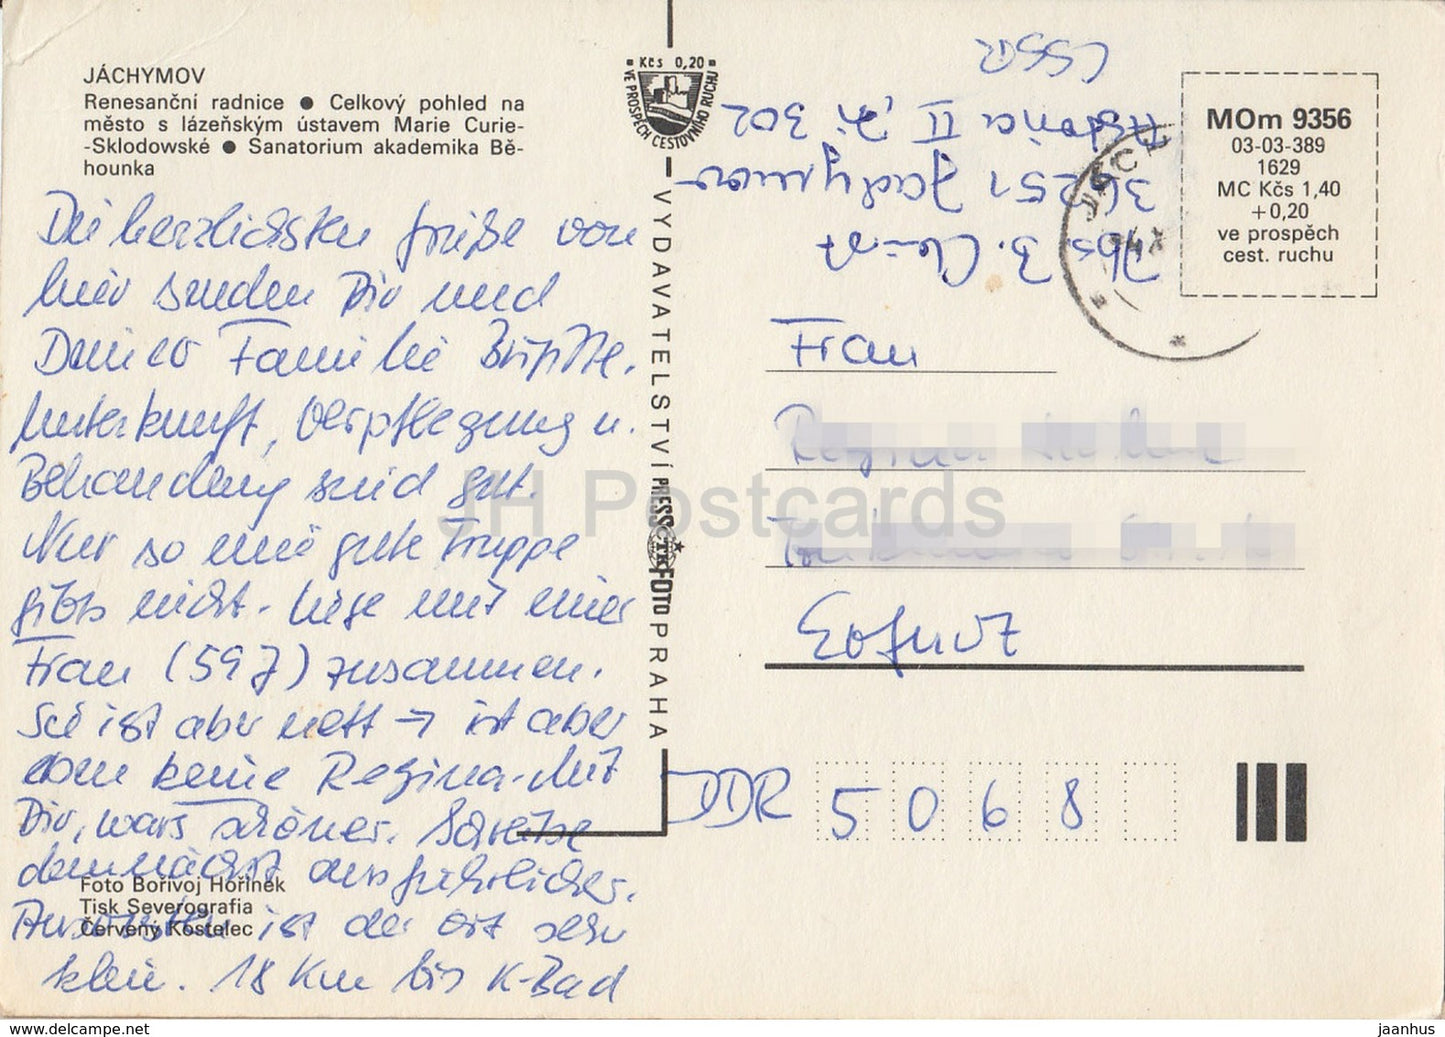 JÁCHYMOV
Renesanční radnice ● Celkový pohled na
město s lázeňským ústavem Marie Curie-
-Sklodowské ● Sanatorium akademika Bě-
hounka
Die herzlichsten Grüße von
hier senden Dir und
Deiner Familie Brigitte.
Unterkunft, Verpflegung u.
Behandlung sind gut.
Nur so eine gute Truppe
gibts nicht. Liege mit einer
Frau (59 J) zusammen.
Sie ist aber nett → ist aber
eben keine Regina - Mit
Dir, wars schöner. Schreibe
demnächst ausführlicher.
Ansonsten ist der Ort sehr
klein. 18 Km bis K-Bad
Foto Bořivoj Hořínek
Tisk Severografia
Červený Kostelec
Kčs 0,20
VE PROSPĚCH CESTOVNÍHO RUCHU
VYDAVATELSTVÍ PRESSFOTO PRAHA
ČTK
Abs. B.
36251 Jachymov
II, Zi. 302
CSSR
MOm 9356
03-03-389
1629
MC Kčs 1,40
+0,20
ve prospěch
cest. ruchu
JÁCH
Frau
Regina
Erfurt
DDR 5068
JH Postcards
www.delcampe.net
jaanhus